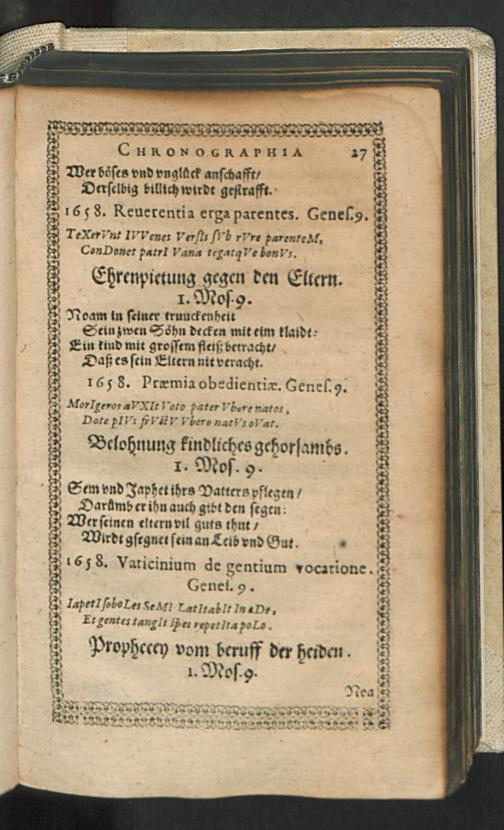 CHRONOGRAPHIA 27
Wer böses vnd vnglück anschafft/
Derselbig billich wirdt gestrafft.
1658. Reuerentia erga parentes. Genes.9.
TeXerVnt IVVenes Versis sVb rVre parenteM,
ConDonet patrI Vana tegatqVe bonVs.
Ehrenpietung gegen den Eltern.
1. Mos. 9.
Noam in seiner trunckenheit
Sein zwen Söhn decken mit eim klaidt:
Ein kind mit grossem fleiß betracht/
Daß es sein Eltern nit veracht.
1658. Præmia obedientiæ. Genes. 9.
MorIgeros aVXIt Voto pater Vbere natos,
Dote pIVs frVctV Vbere natVs oVat.
Belohnung kindliches gehorsambs.
1. Mos. 9.
Sem vnd Japhet ihrs Vatters pflegen/
Darümb er ihn auch gibt den segen:
Wer seinen eltern vil guts thut/
Wirdt gsegnet sein an Leib vnd Gut.
1658. Vaticinium de gentium vocatione.
Genes. 9.
IapetI soboLes SeMI LatItabIt In æDe,
Et gentes tangIt spes repetIta poLo.
Prophecey vom beruff der heiden.
1. Mos. 9.
Noa